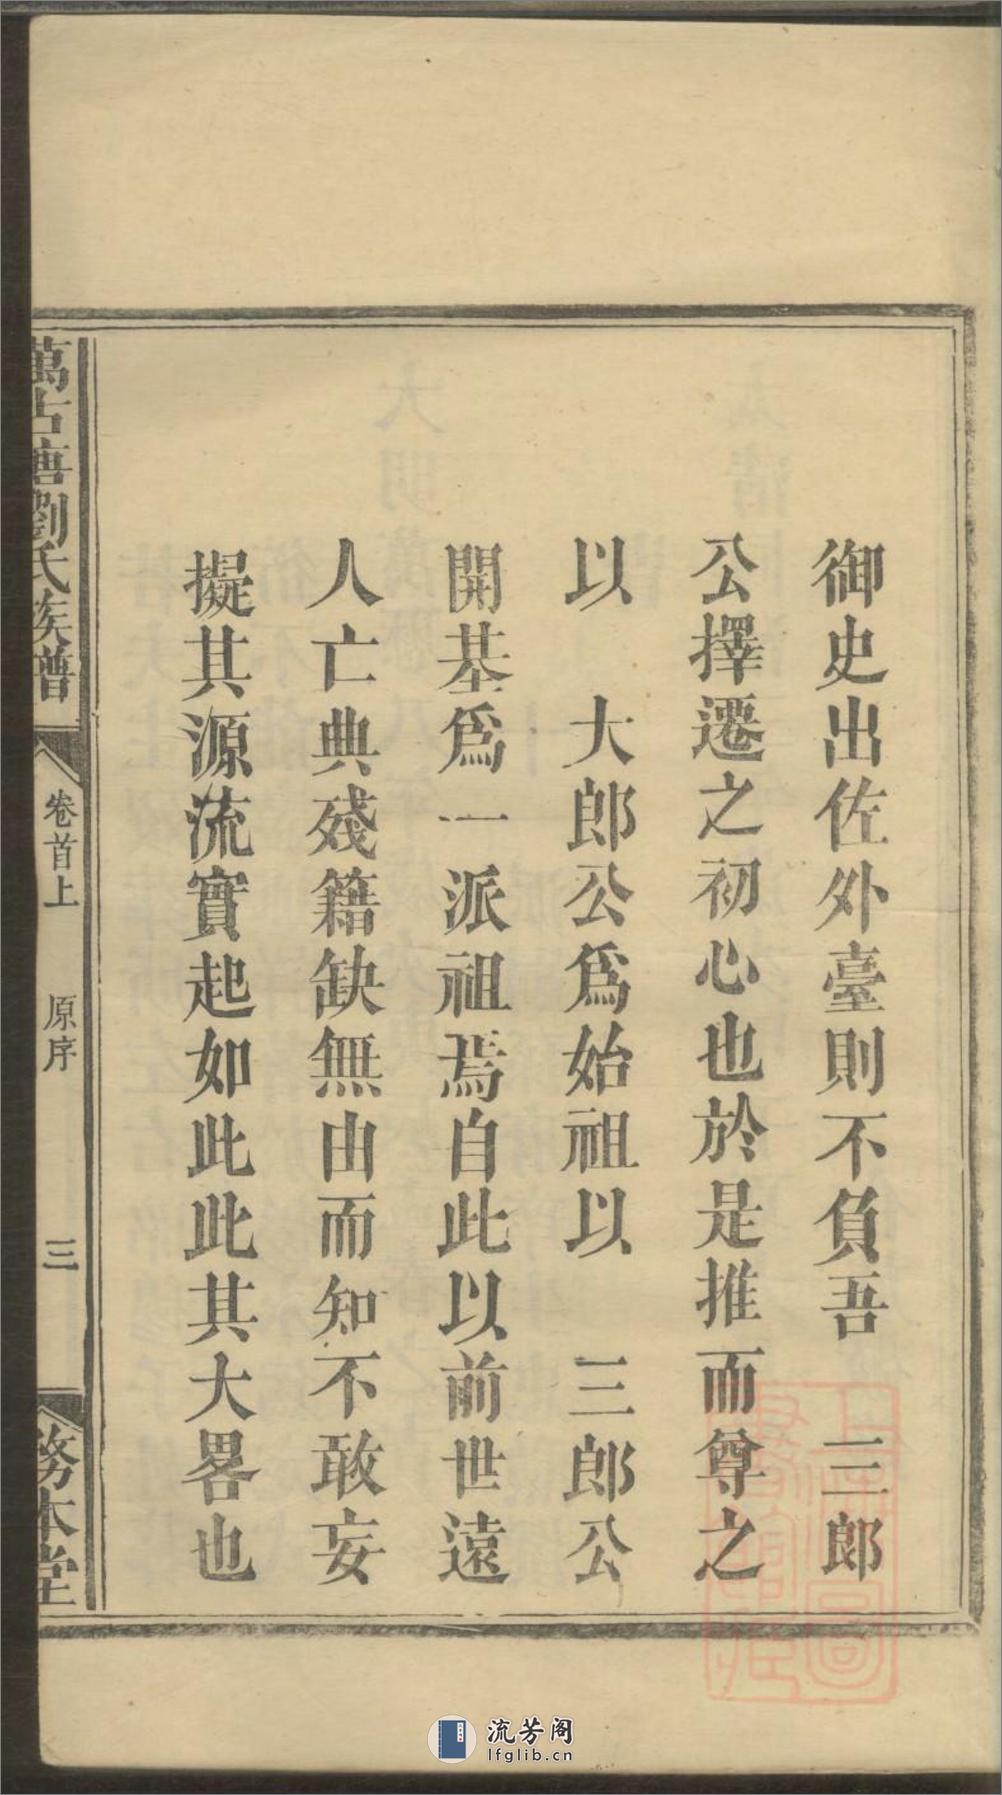 御史出佐外臺則不負吾　三郎
公擇遷之初心也於是推而尊之
以　大郎公爲始祖以　三郎公
開基爲一派祖焉自此以前世遠
人亡典殘籍缺無由而知不敢妄
擬其源流實起如此此其大畧也
萬古塘劉氏族譜
卷首上　原序　三
務本堂
上海圖書館藏
流芳阁
lfglib.cn